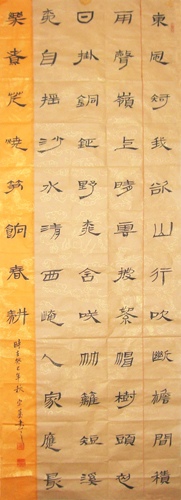 東風知我欲山行吹斷檐間積
雨聲嶺上晴雲披絮帽樹頭初
日掛銅鉦野桃含笑竹籬短溪
柳自搖沙水清西崦人家應最
樂煮芹燒筍餉春耕
時在癸巳年秋